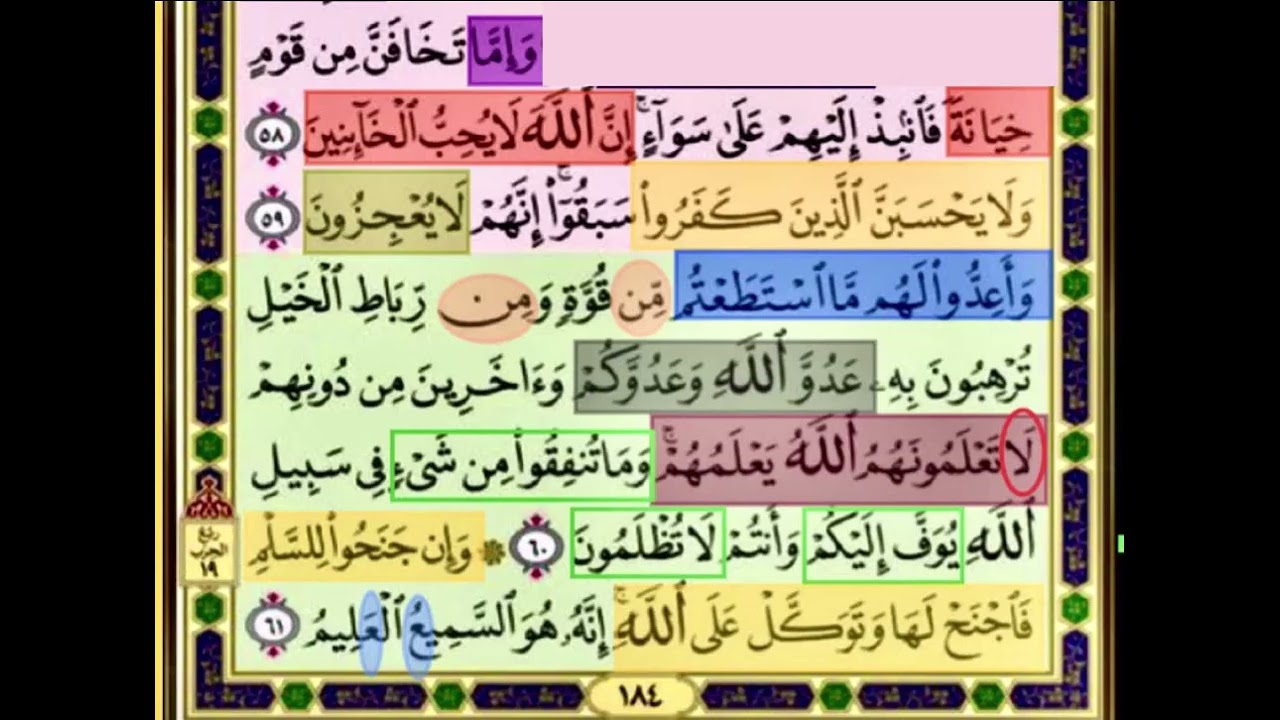 وَإِمَّا تَخَافَنَّ مِن قَوْمٍ
خِيَانَةً فَٱنۢبِذْ إِلَيْهِمْ عَلَىٰ سَوَآءٍ ۚ إِنَّ ٱللَّهَ لَا يُحِبُّ ٱلْخَآئِنِينَ ٥٨
وَلَا يَحْسَبَنَّ ٱلَّذِينَ كَفَرُوا۟ سَبَقُوٓا۟ ۚ إِنَّهُمْ لَا يُعْجِزُونَ ٥٩
وَأَعِدُّوا۟ لَهُم مَّا ٱسْتَطَعْتُم مِّن قُوَّةٍ وَمِن رِّبَاطِ ٱلْخَيْلِ
تُرْهِبُونَ بِهِۦ عَدُوَّ ٱللَّهِ وَعَدُوَّكُمْ وَءَاخَرِينَ مِن دُونِهِمْ
لَا تَعْلَمُونَهُمُ ٱللَّهُ يَعْلَمُهُمْ ۚ وَمَا تُنفِقُوا۟ مِن شَىْءٍ فِى سَبِيلِ
ٱللَّهِ يُوَفَّ إِلَيْكُمْ وَأَنتُمْ لَا تُظْلَمُونَ ٦٠ ۞ وَإِن جَنَحُوا۟ لِلسَّلْمِ
ربع
الحزب
١٩
فَٱجْنَحْ لَهَا وَتَوَكَّلْ عَلَى ٱللَّهِ ۚ إِنَّهُۥ هُوَ ٱلسَّمِيعُ ٱلْعَلِيمُ ٦١
١٨٤